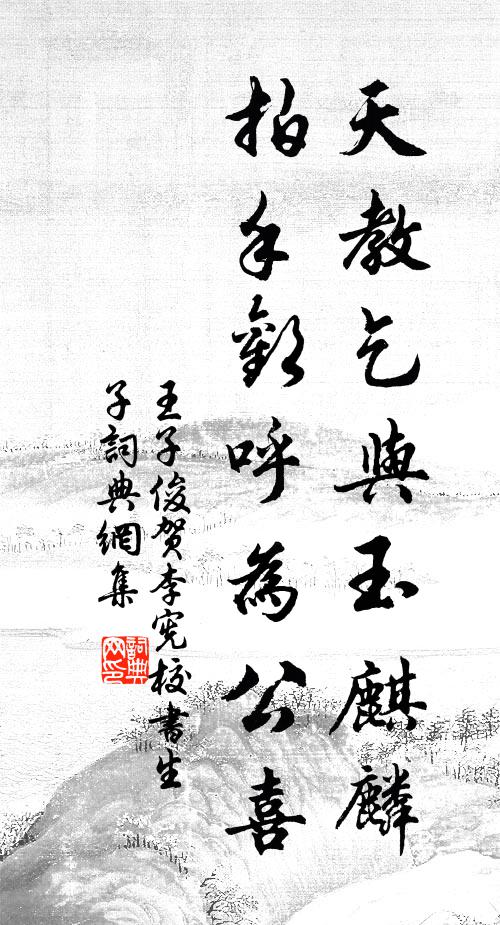 天教乞與玉麒麟
拍手歡呼為公喜
王子俊賀李宪校書生
子詞典網集
詞典
网印